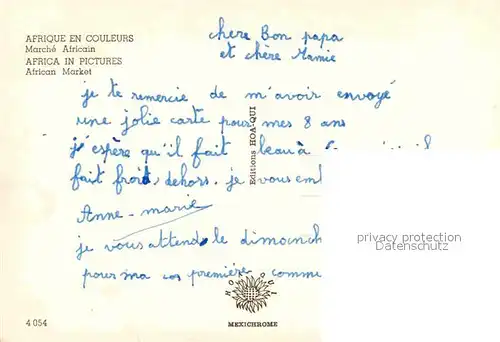 AFRIQUE EN COULEURS
Marché Africain
AFRICA IN PICTURES
African Market
chere Bon papa
et chère Mamie
je te remercie de m'avoir envoyé
une jolie carte pour mes 8 ans
j'espère qu'il fait beau à
fait froid dehors. je vous
Anne-marie
je vous attend le
pour ma première
Editions HOA-QUI
privacy protection
Datenschutz
HOA QUI
4 054
MEXICHROME